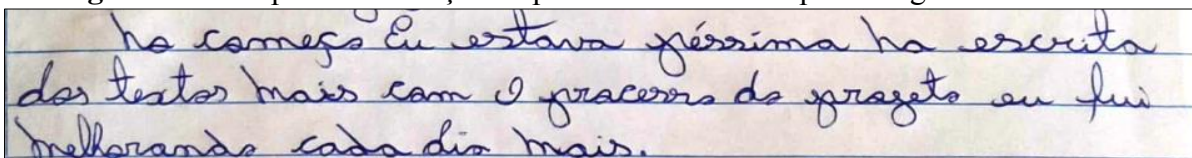 no começo Eu estava péssima na escrita
dos textos mais com o processo do progeto eu fui
melhorando cada dia mais.